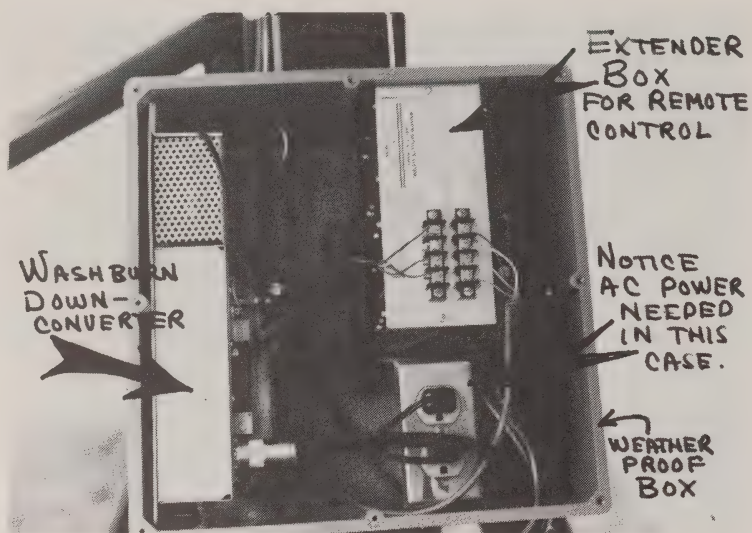 EXTENDER
BOX
FOR REMOTE
CONTROL
WASHBURN
DOWN-
CONVERTER
NOTICE
AC POWER
NEEDED
IN THIS
CASE.
WEATHER
PROOF
BOX